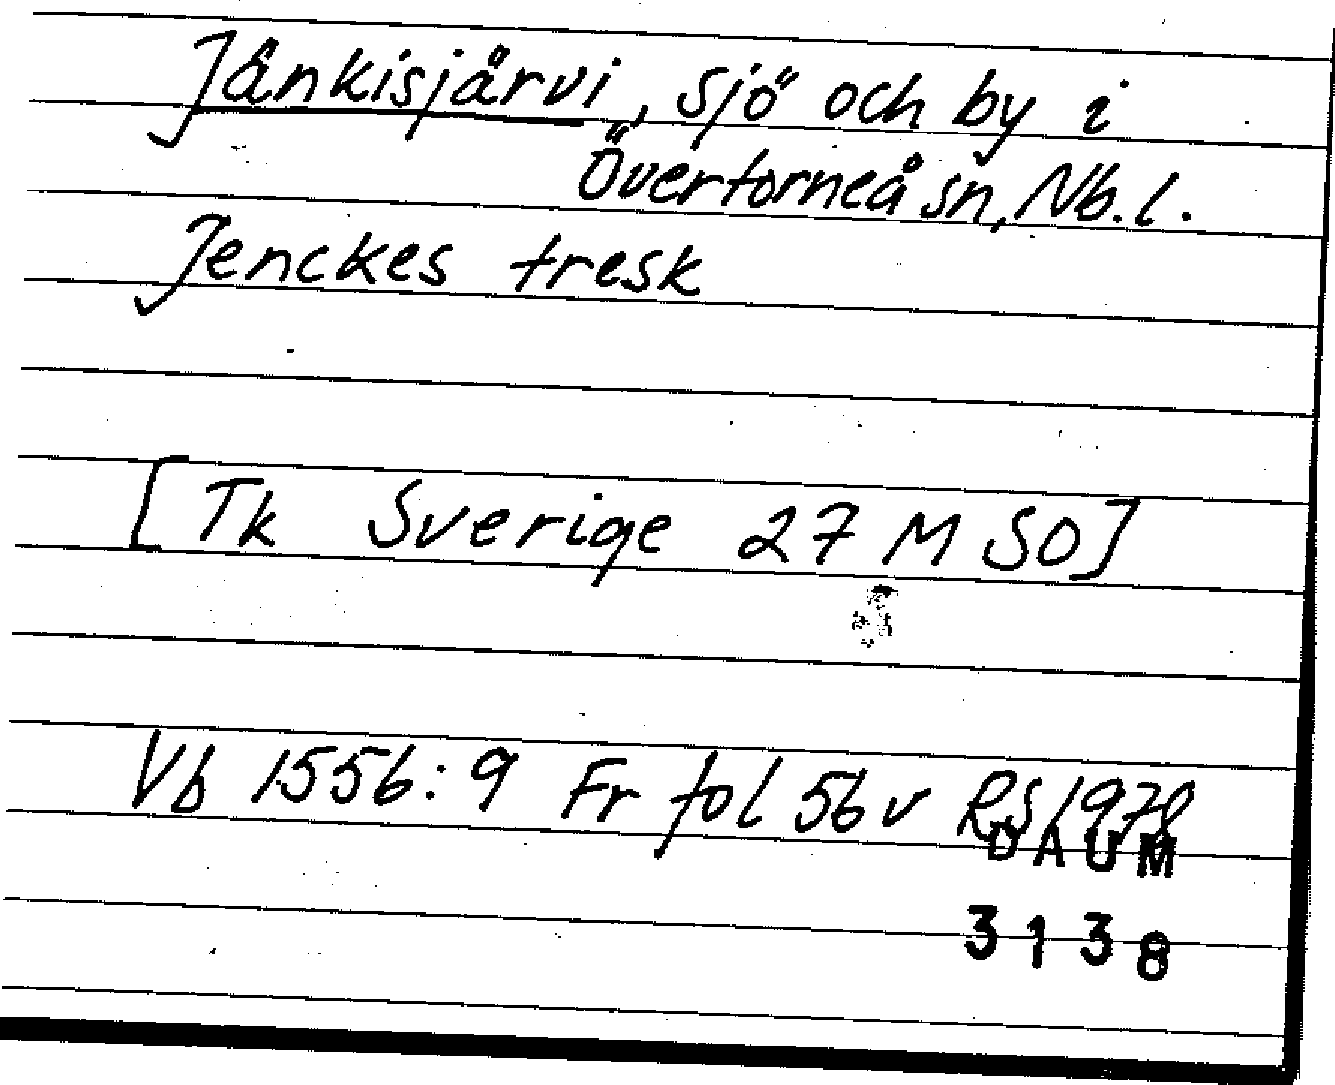 Jänkisjärvi, sjö och by i
Övertorneå sn, Nb. l.
Jenckes tresk
[Tk Sverige 27 M SO]
Vb 1556:9 Fr fol 56 v RS 1978
DAUM
3138